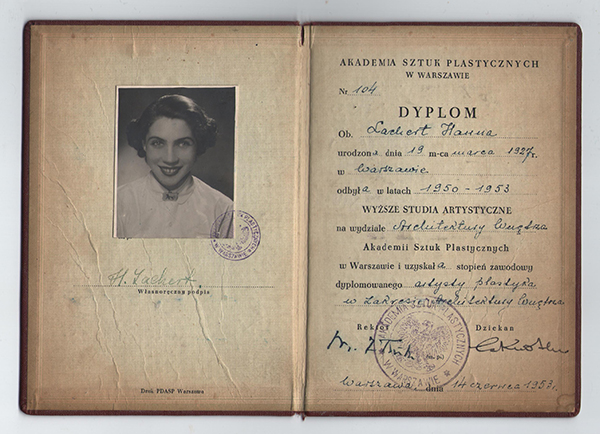 H. Lachert
Własnoręczny podpis
Druk PDASP Warszawa
AKADEMIA SZTUK PLASTYCZNYCH
W WARSZAWIE
Nr 104
DYPLOM
Ob. Lachert Hanna
urodzona dnia 19 m-ca marca 1927r.
w Warszawie
odbyła w latach 1950-1953
WYŻSZE STUDIA ARTYSTYCZNE
na wydziale Architektury Wnętrz
Akademii Sztuk Plastycznych
w Warszawie i uzyskała stopień zawodowy
dyplomowanego artysty plastyka
w zakresie Architektury Wnętrz
Rektor Dziekan
AKADEMIA SZTUK PLASTYCZNYCH
W WARSZAWIE
Warszawa, dnia 14 czerwca 1953r.